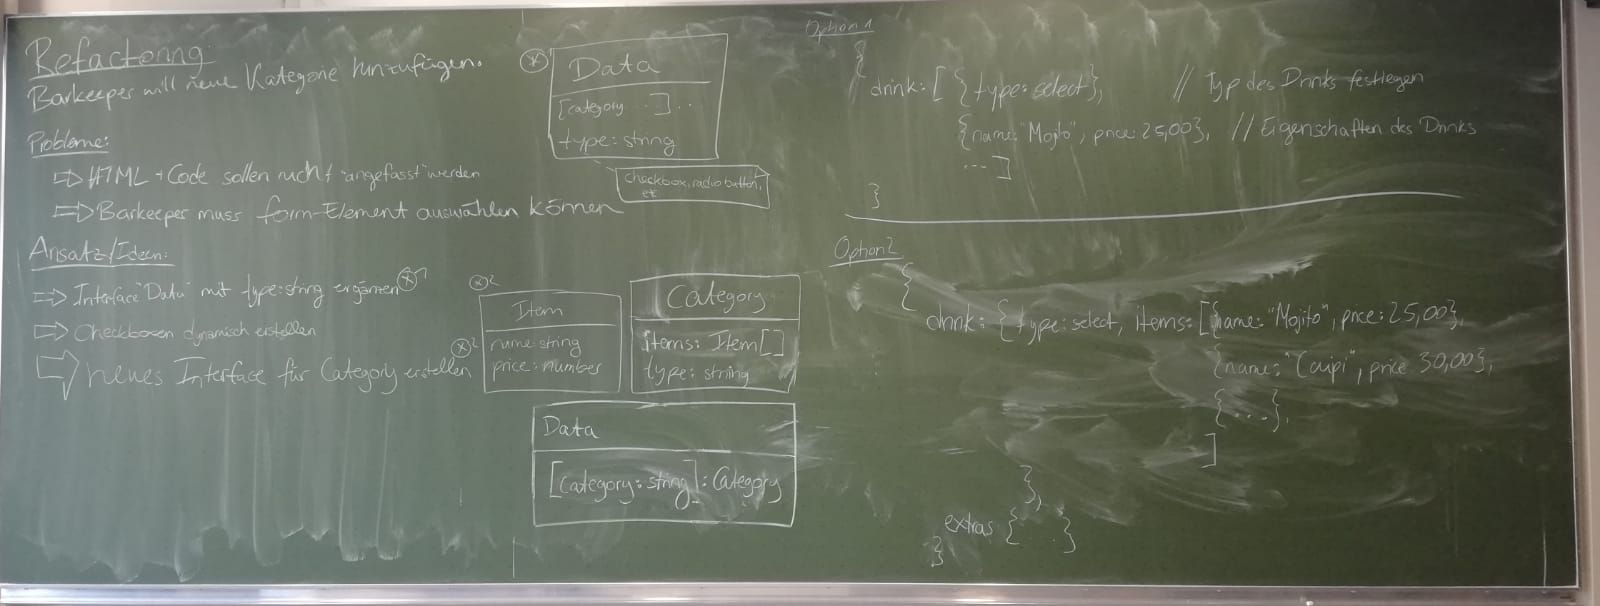 Refactoring:
Barkeeper will neue Kategorie hinzufügen.
Probleme:
⇒ HTML + Code sollen nicht "angefasst" werden
⇒ Barkeeper muss form-Element auswählen können
Ansatz/Ideen:
⇒ Interface "Data" mit type:string ergänzen *1
⇒ Checkboxen dynamisch erstellen
⇒ neues Interface für Category erstellen *2
*1
Data
[category ...] ..
type: string
checkbox, radio button,
etc.
*2
Item
name: string
price: number
Category
items: Item[]
type: string
Data
[category: string]: Category
Option 1
{
drink: [ {type: select}, // Typ des Drinks festlegen
{name: "Mojito", price: 25,00}, // Eigenschaften des Drinks
... ]
}
Option 2
{
drink: {type: select, items: [{name: "Mojito", price: 25,00},
{name: "Caipi", price 30,00},
{...},
]
},
extras {...}
}